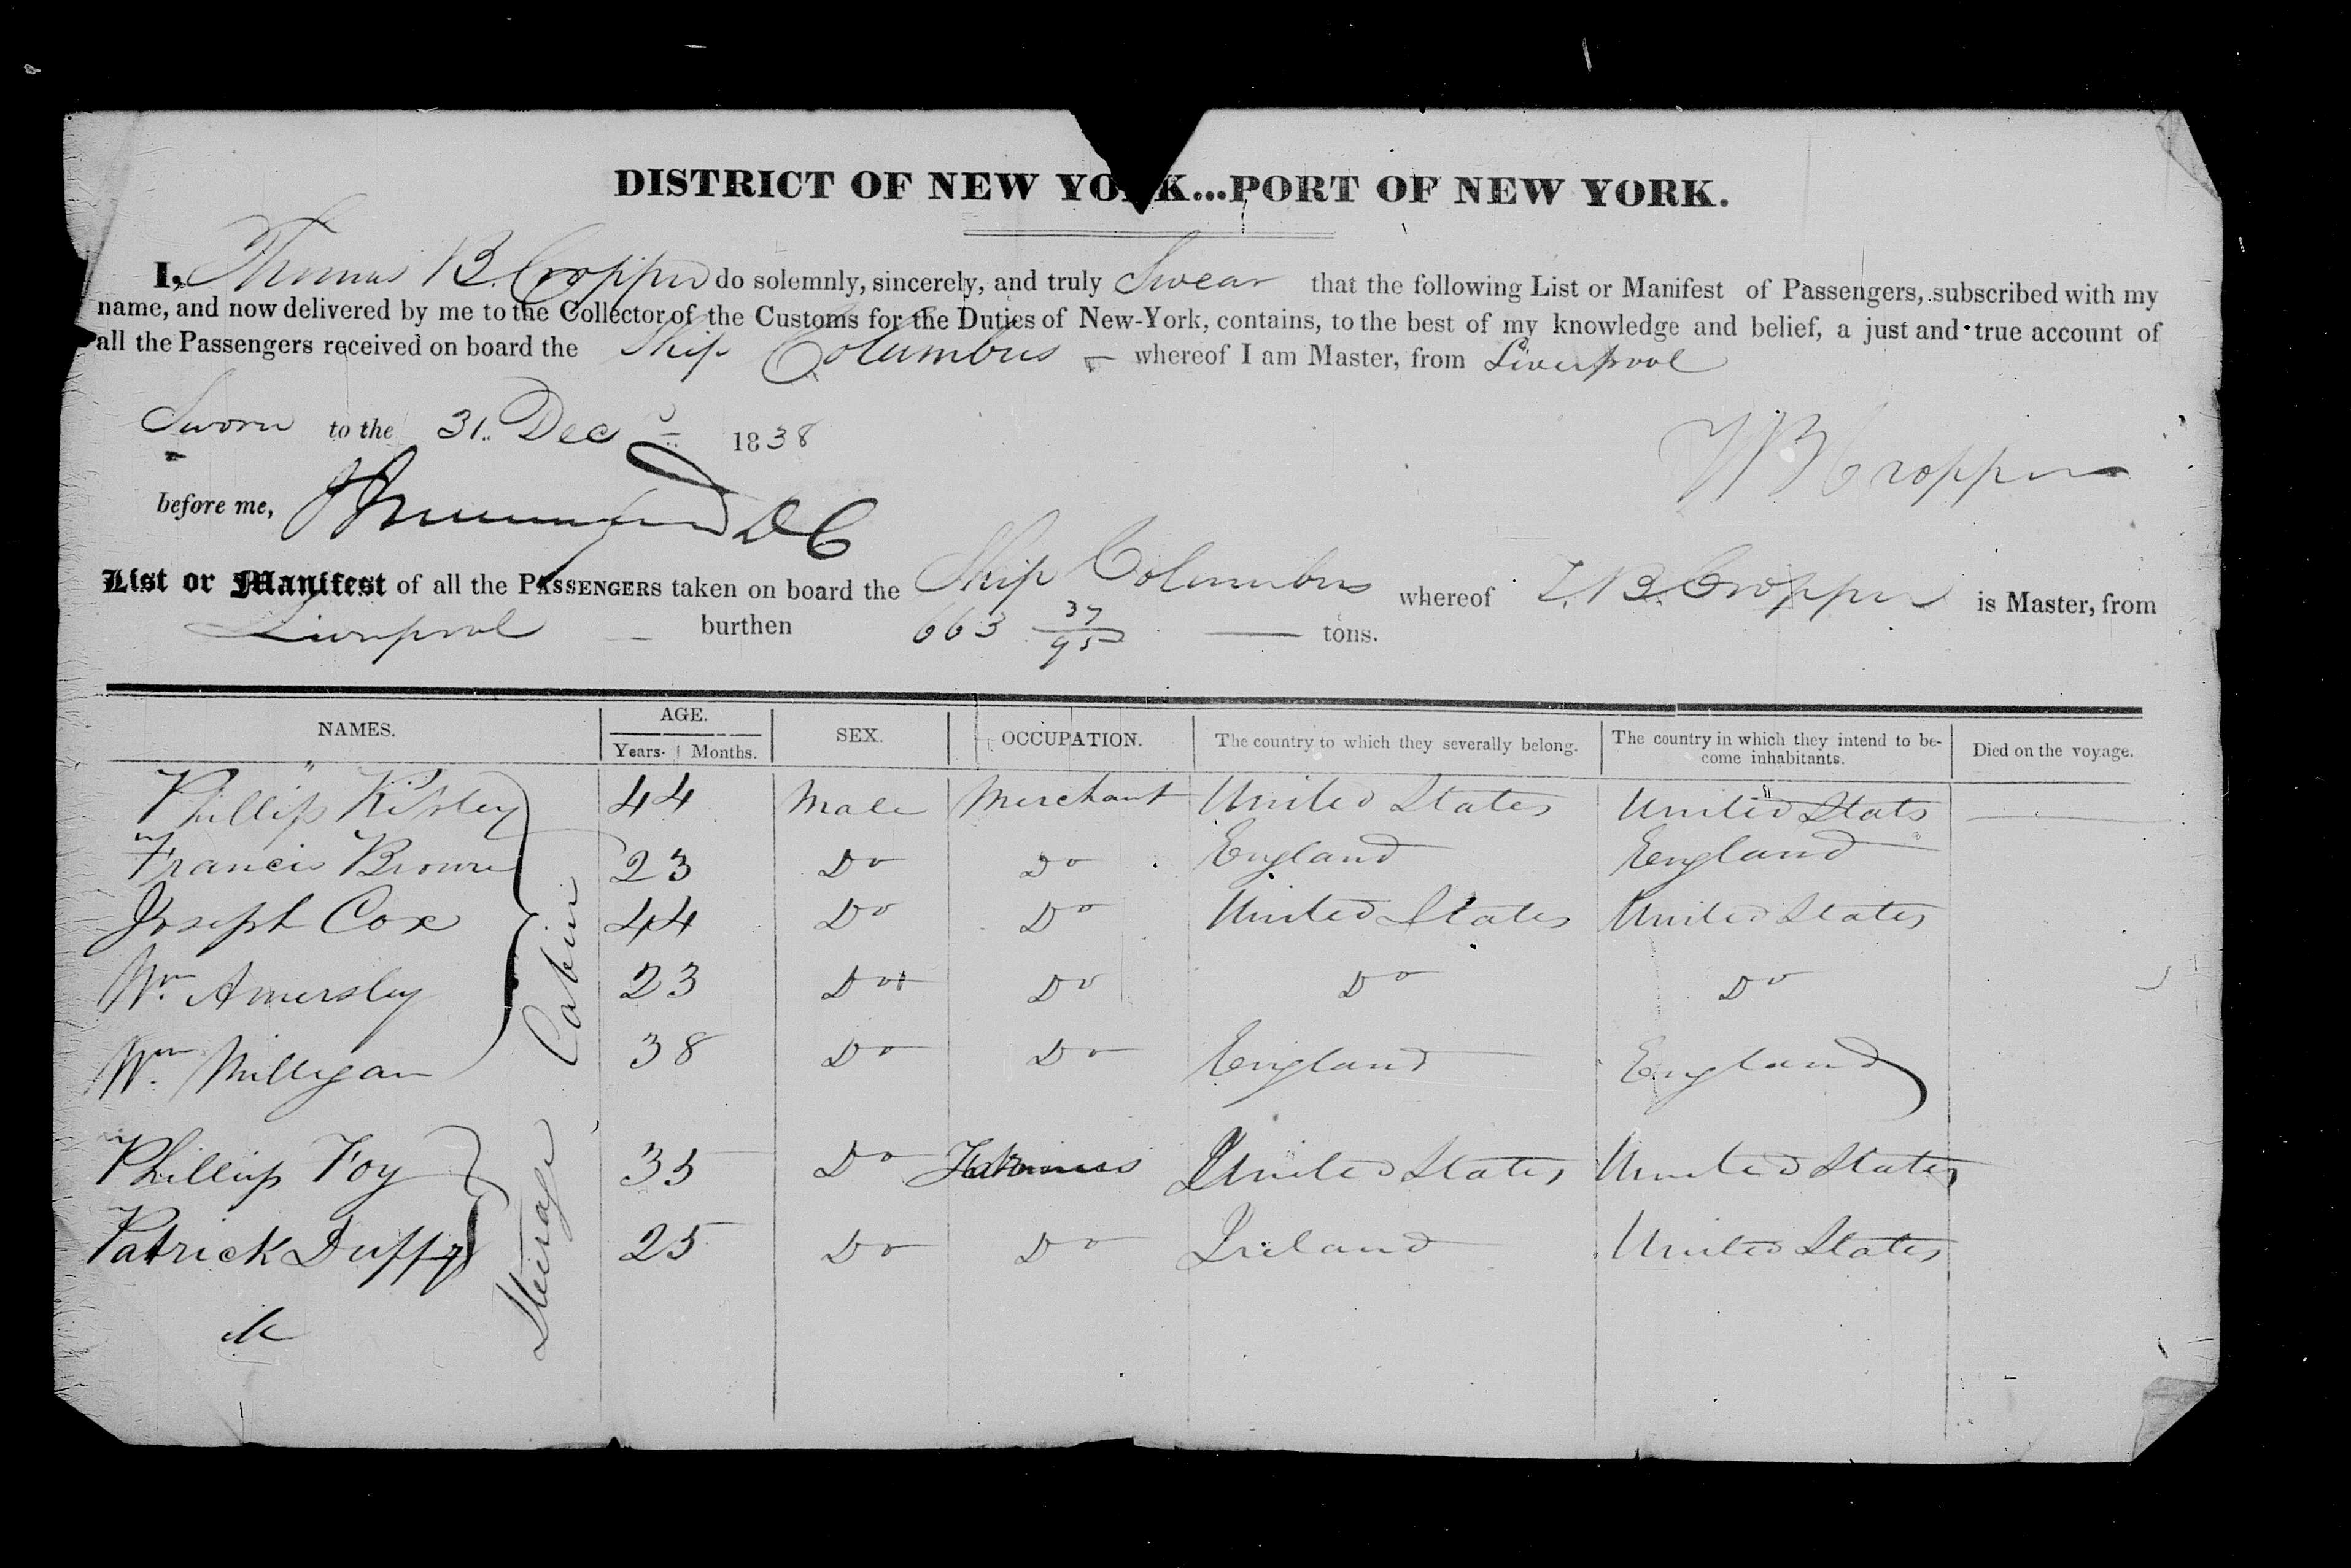 DISTRICT OF NEW YORK...PORT OF NEW YORK.
I, Thomas B. Cropper do solemnly, sincerely, and truly Swear that the following List or Manifest of Passengers, subscribed with my
name, and now delivered by me to the Collector of the Customs for the Duties of New-York, contains, to the best of my knowledge and belief, a just and true account of
all the Passengers received on board the Ship Columbus — whereof I am Master, from Liverpool
Sworn to the 31. Dec 1838
T B Cropper
before me, D C
List or Manifest of all the PASSENGERS taken on board the Ship Columbus whereof T. B. Cropper is Master, from
Liverpool — burthen 663 37/95 — tons.
NAMES. AGE. SEX. OCCUPATION. The country to which they severally belong. The country in which they intend to be-
come inhabitants. Died on the voyage.
Years. Months.
Phillip 44 Male Merchant United States United Stats
Francis Brown 23 Do Do England England
Joseph Cox 44 Do Do United States United States
Wm Amersley 23 Do Do Do Do
Wm Milligan 38 Do Do England England
Cabin
Phillip Foy 35 Do United States United States
Patrick Duffy 25 Do Do Ireland United States
Steirage